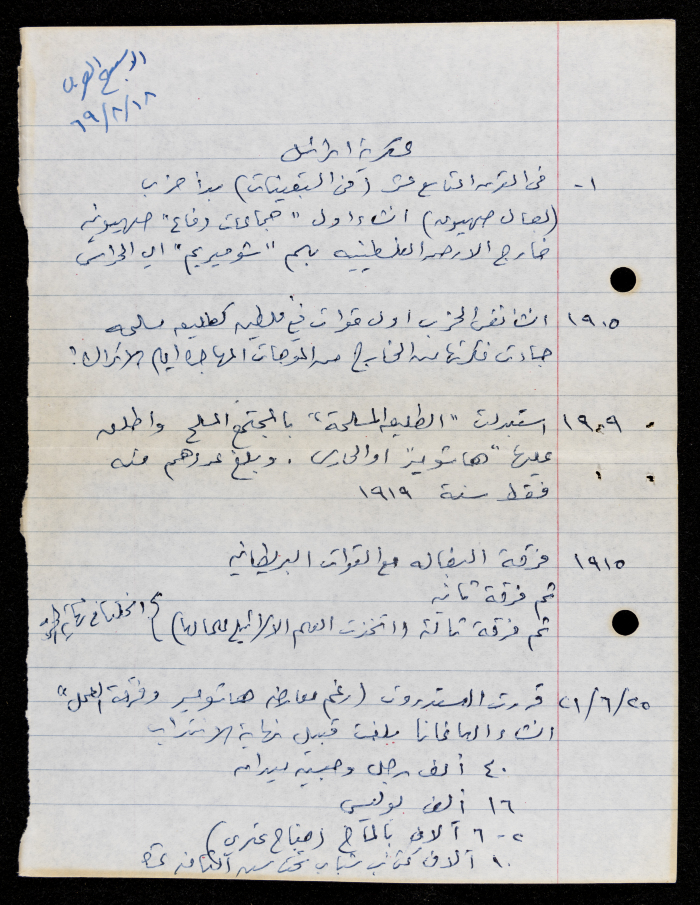 الاسبوع العربي
٦٩/٢/١٨
عسكرية اسرائيل
١- في القرن التاسع عشر (في التسعينات) بدأ حزب
(لعمال صهيون) انشاء اول "جماعات دفاع" صهيونيه
خارج الارض الفلسطينيه باسم "شوميريم" اي الحراس
١٩٠٥ انشأ نفس الحزب اول قوات في فلسطين كطليعه مسلحه
جاءت فكرتها من الخارج من الموجات المهاجره ايام الاتراك!
١٩٠٩ استبدلت "الطليعه المسلحة" بالمجتمع المسلح واطلق
عليها "هاشومير" او الحارس. وبلغ عددهم مئه
فقط سنة ١٩١٩
١٩١٥ فرقة البغاله مع القوات البريطانيه
ثم فرقة ثانيه
ثم فرقة ثالثة (واتخذت العلم الاسرائيلي لها) } اختلفا في نهاية
٢١/٦/٢٥ قررت الهستدروت (رغم معارضة هاشومير وفرقة العمل"
انشاء الهاغانا بلغت قبيل نهاية الانتداب
٤٠ ألف رجل وحبيبة ميدان
١٦ ألف بوليس
٢-٦ آلاف بالماخ (جناح عسكري)
١٠ آلاف كتائب شباب تحت سن الثامنه عشرة